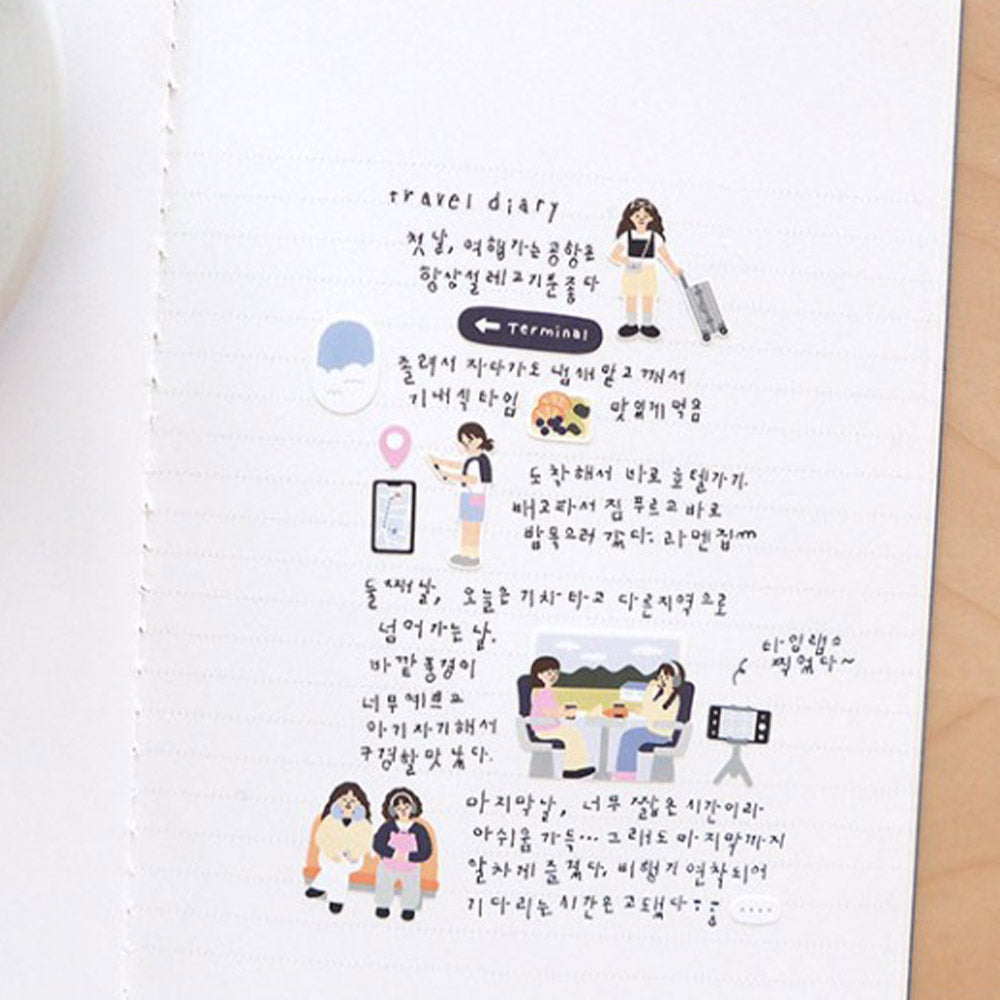 travel diary
첫날, 여행가는 공항은
항상 설레고 기분 좋다
← Terminal
졸려서 자다가도 냄새 맡고 깨서
기내식타임 맛있게 먹음
도착해서 바로 호텔가기.
배고파서 짐 푸르고 바로
밥 먹으러 갔다. 라멘집m
둘째날, 오늘은 기차타고 다른지역으로
넘어가는 날.
바깥 풍경이
너무 예쁘고
아기자기해서
구경할 맛 났다.
타임랩스
찍었다~
마지막날, 너무 짧은 시간이라
아쉬움 가득... 그래도 마지막까지
알차게 즐겼다. 비행기 연착되어
기다리는 시간은 고됐다
....